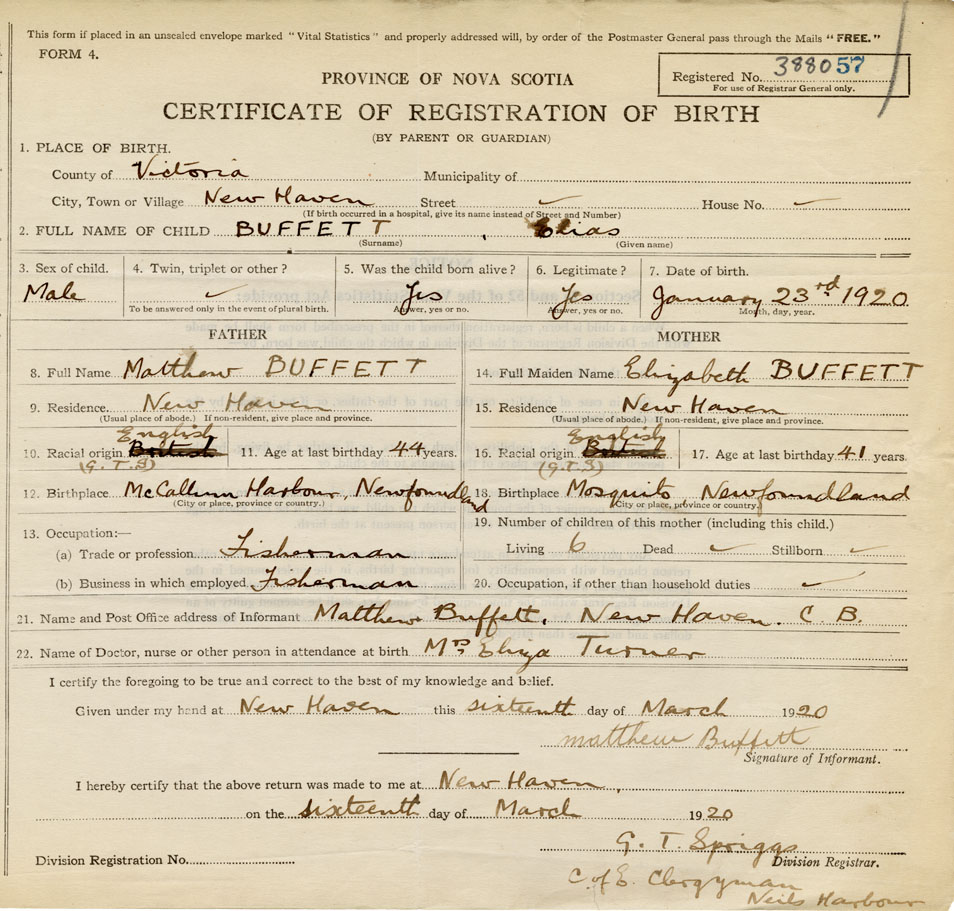 This form if placed in an unsealed envelope marked "Vital Statistics" and properly addressed will, by order of the Postmaster General pass through the Mails "FREE."
FORM 4.
Registered No. 388057
For use of Registrar General only.
PROVINCE OF NOVA SCOTIA
CERTIFICATE OF REGISTRATION OF BIRTH
(BY PARENT OR GUARDIAN)
1. PLACE OF BIRTH.
County of Victoria Municipality of
City, Town or Village New Haven Street ✓ House No. ✓
(If birth occurred in a hospital, give its name instead of Street and Number)
2. FULL NAME OF CHILD BUFFETT, Elias
(Surname) (Given name)
3. Sex of child. 4. Twin, triplet or other? 5. Was the child born alive? 6. Legitimate? 7. Date of birth.
Male ✓ Yes Yes January 23rd 1920
To be answered only in the event of plural birth. Answer, yes or no. Answer, yes or no. Month, day, year.
FATHER MOTHER
8. Full Name Matthew BUFFETT 14. Full Maiden Name Elizabeth BUFFETT
9. Residence. New Haven 15. Residence New Haven
(Usual place of abode.) If non-resident, give place and province. (Usual place of abode.) If non-resident, give place and province.
English English
10. Racial origin British 11. Age at last birthday 44 years. 16. Racial origin British 17. Age at last birthday 41 years.
(G.T.S) (G.T.S)
12. Birthplace McCallum Harbour, Newfoundland 18. Birthplace Mosquito, Newfoundland
(City or place, province or country.) (City or place, province or country)
19. Number of children of this mother (including this child.)
13. Occupation:—
(a) Trade or profession Fisherman Living 6 Dead ✓ Stillborn ✓
(b) Business in which employed Fisherman 20. Occupation, if other than household duties ✓
21. Name and Post Office address of Informant Matthew Buffett, New Haven. C B.
22. Name of Doctor, nurse or other person in attendance at birth Mrs Eliza Turner
I certify the foregoing to be true and correct to the best of my knowledge and belief.
Given under my hand at New Haven this sixteenth day of March 1920
matthew Buffett
Signature of Informant.
I hereby certify that the above return was made to me at New Haven,
on the sixteenth day of March 1920
G. T. Spriggs
Division Registration No. Division Registrar.
C. of E. Clergyman
Neils Harbour